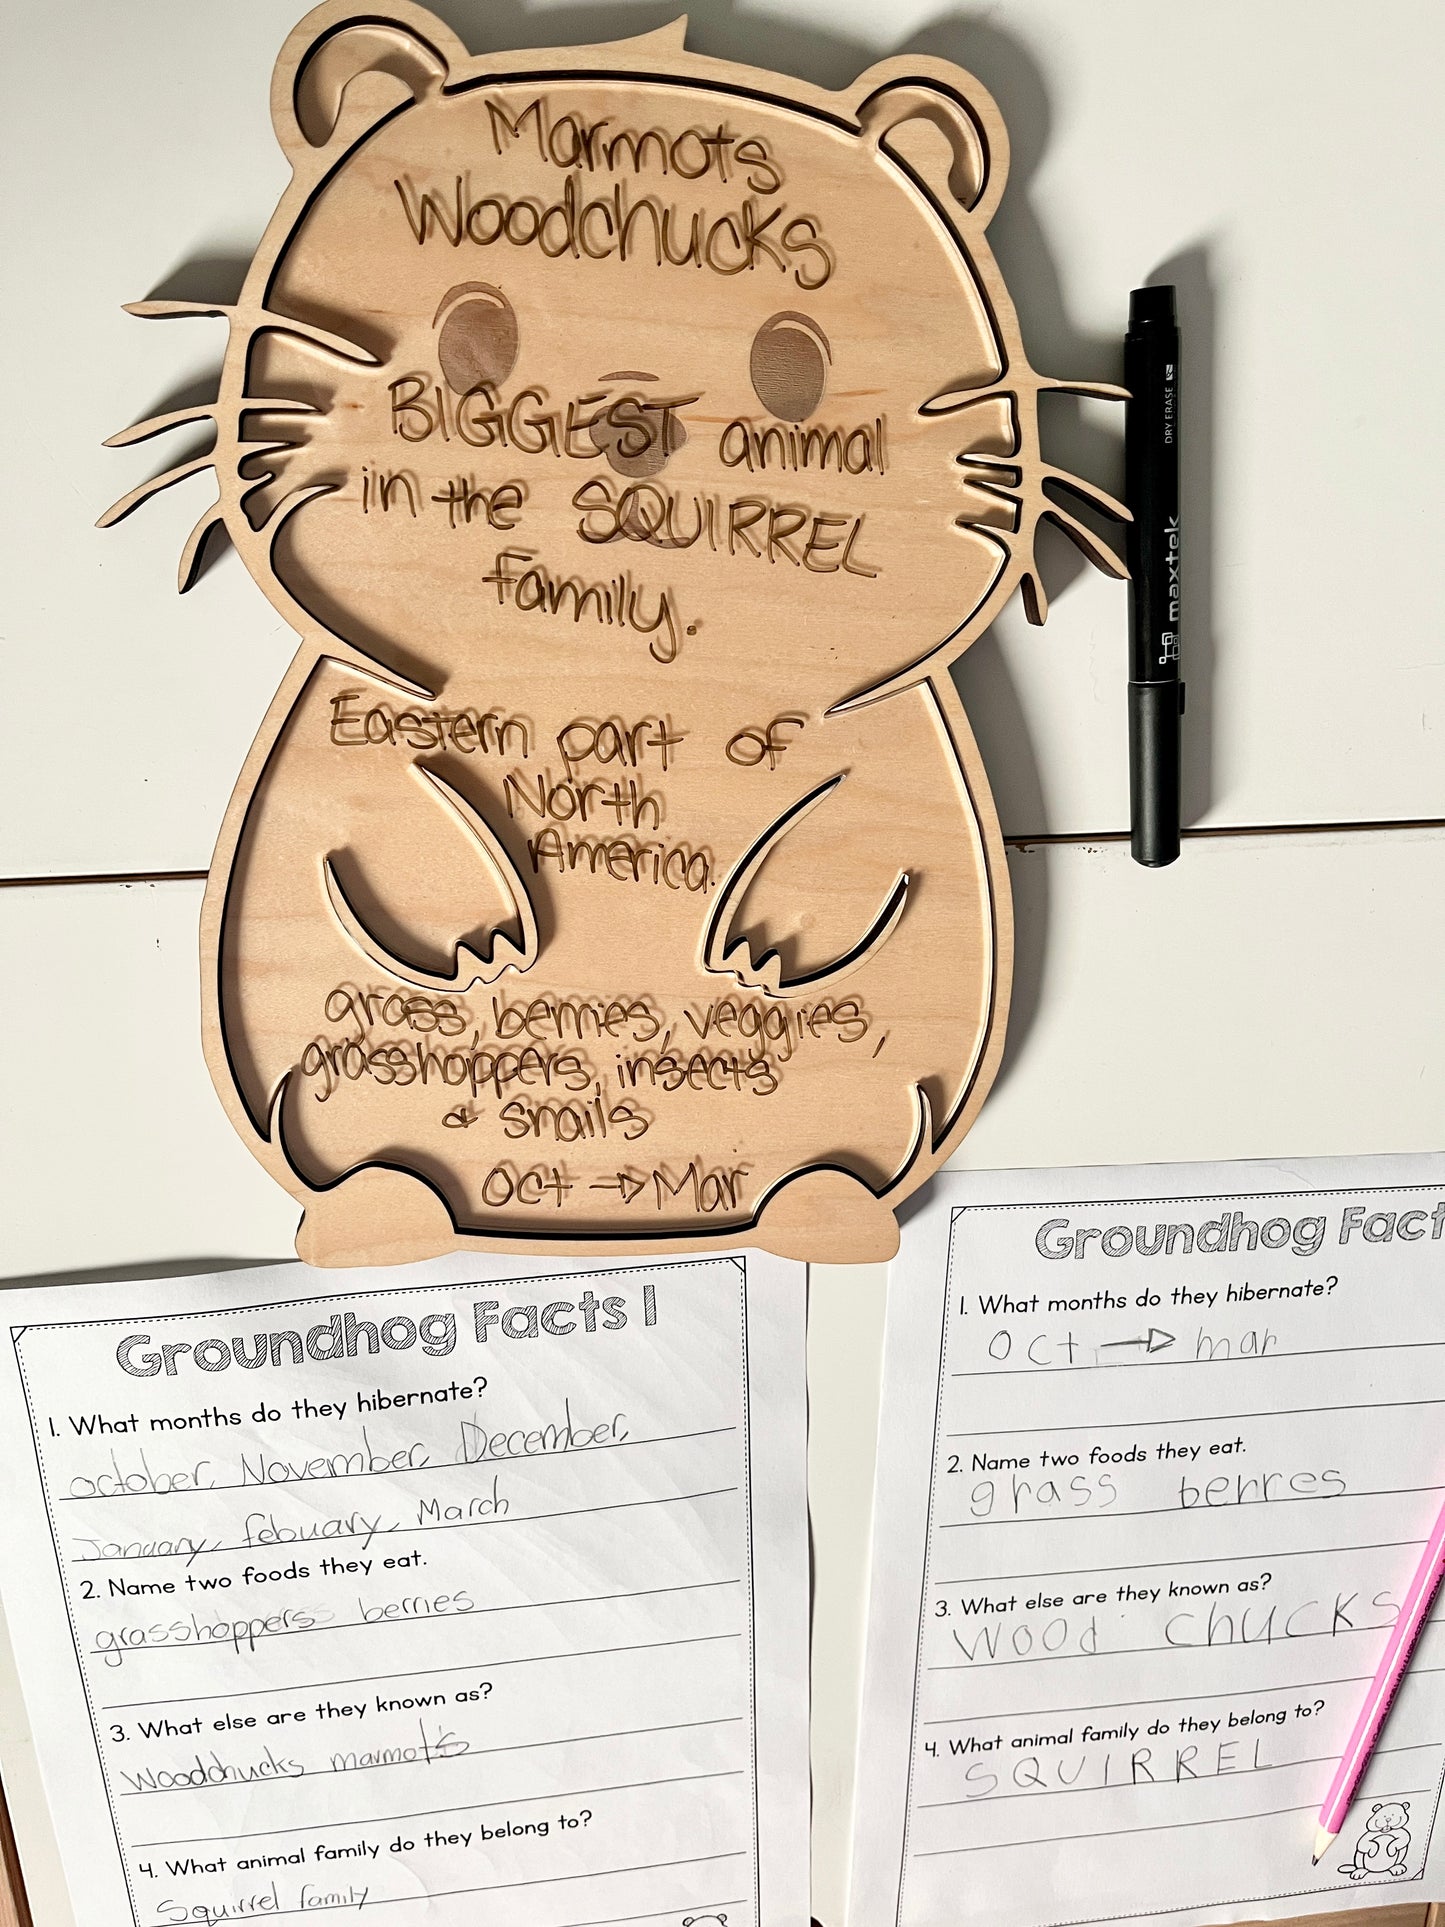 Marmots
Woodchucks
BIGGEST animal
in the SQUIRREL
family.
Eastern part of
North
America.
grass, berries, veggies,
grasshoppers, insects
& snails
Oct → Mar
DRY ERASE
maxtek
Groundhog Facts 1
1. What months do they hibernate?
october, November, December,
January, febuary, March
2. Name two foods they eat.
grasshoppers berries
3. What else are they known as?
Woodchucks marmots
4. What animal family do they belong to?
Squirrel family
Groundhog Fact
1. What months do they hibernate?
oct → mar
2. Name two foods they eat.
grass berres
3. What else are they known as?
Wood chucks
4. What animal family do they belong to?
SQUIRREL